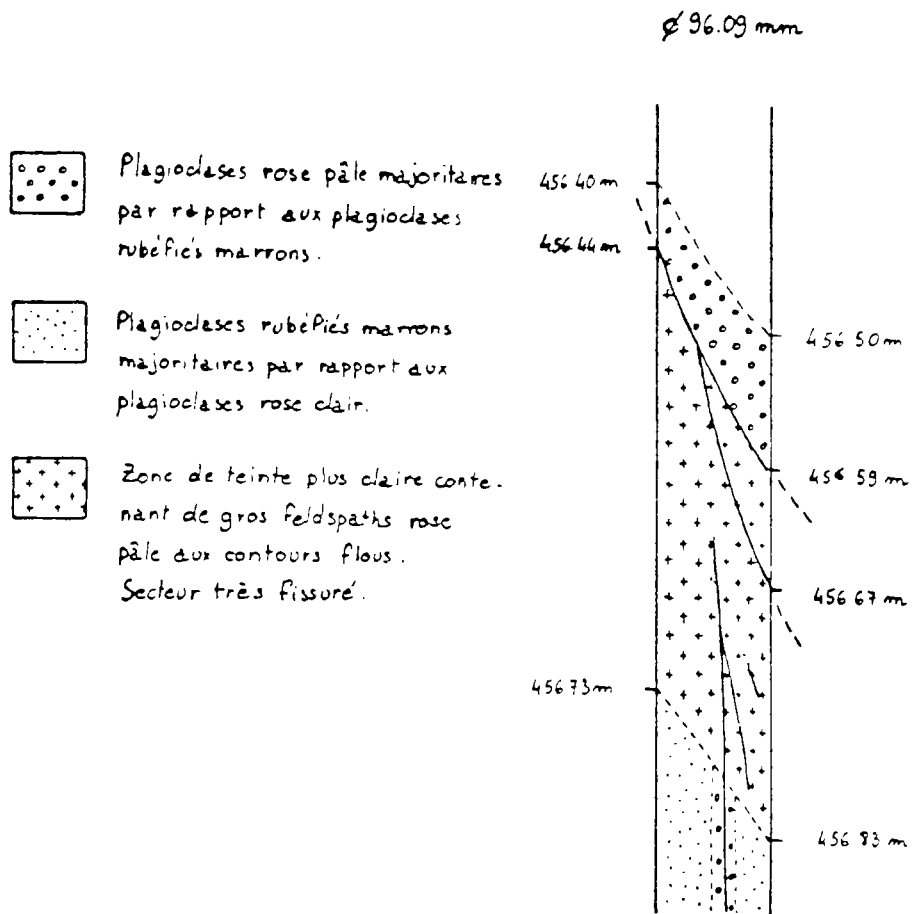 ø 96.09 mm
Plagioclases rose pâle majoritaires
par rapport aux plagioclases
rubéfiés marrons.
Plagioclases rubéfiés marrons
majoritaires par rapport aux
plagioclases rose clair.
Zone de teinte plus claire conte-
nant de gros feldspaths rose
pâle aux contours flous.
Secteur très fissuré.
456 40 m
456 44 m
456 50 m
456 59 m
456 67 m
456 73 m
456 83 m